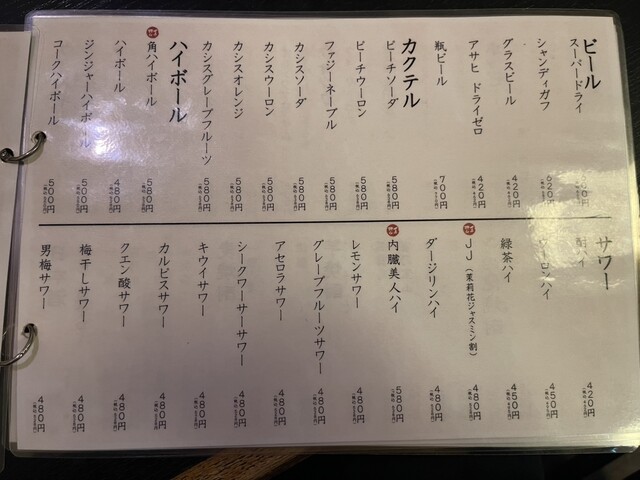 ビール
スーパードライ
シャンディガフ 620円
グラスビール 420円
アサヒ ドライゼロ 420円
瓶ビール 700円
カクテル
ピーチソーダ 580円
ピーチウーロン 580円
ファジーネーブル 580円
カシスソーダ 580円
カシスウーロン 580円
カシスオレンジ 580円
カシスグレープフルーツ 580円
ハイボール
角ハイボール 580円
ハイボール 480円
ジンジャーハイボール 500円
コークハイボール 500円
サワー
酎ハイ 420円
ウーロンハイ 450円
緑茶ハイ 450円
JJ（茉莉花ジャスミン割） 480円
ダージリンハイ 480円
内臓美人ハイ 580円
レモンサワー 480円
グレープフルーツサワー 480円
アセロラサワー 480円
シークワーサーサワー 480円
キウイサワー 480円
カルピスサワー 480円
クエン酸サワー 480円
梅干しサワー 480円
男梅サワー 480円